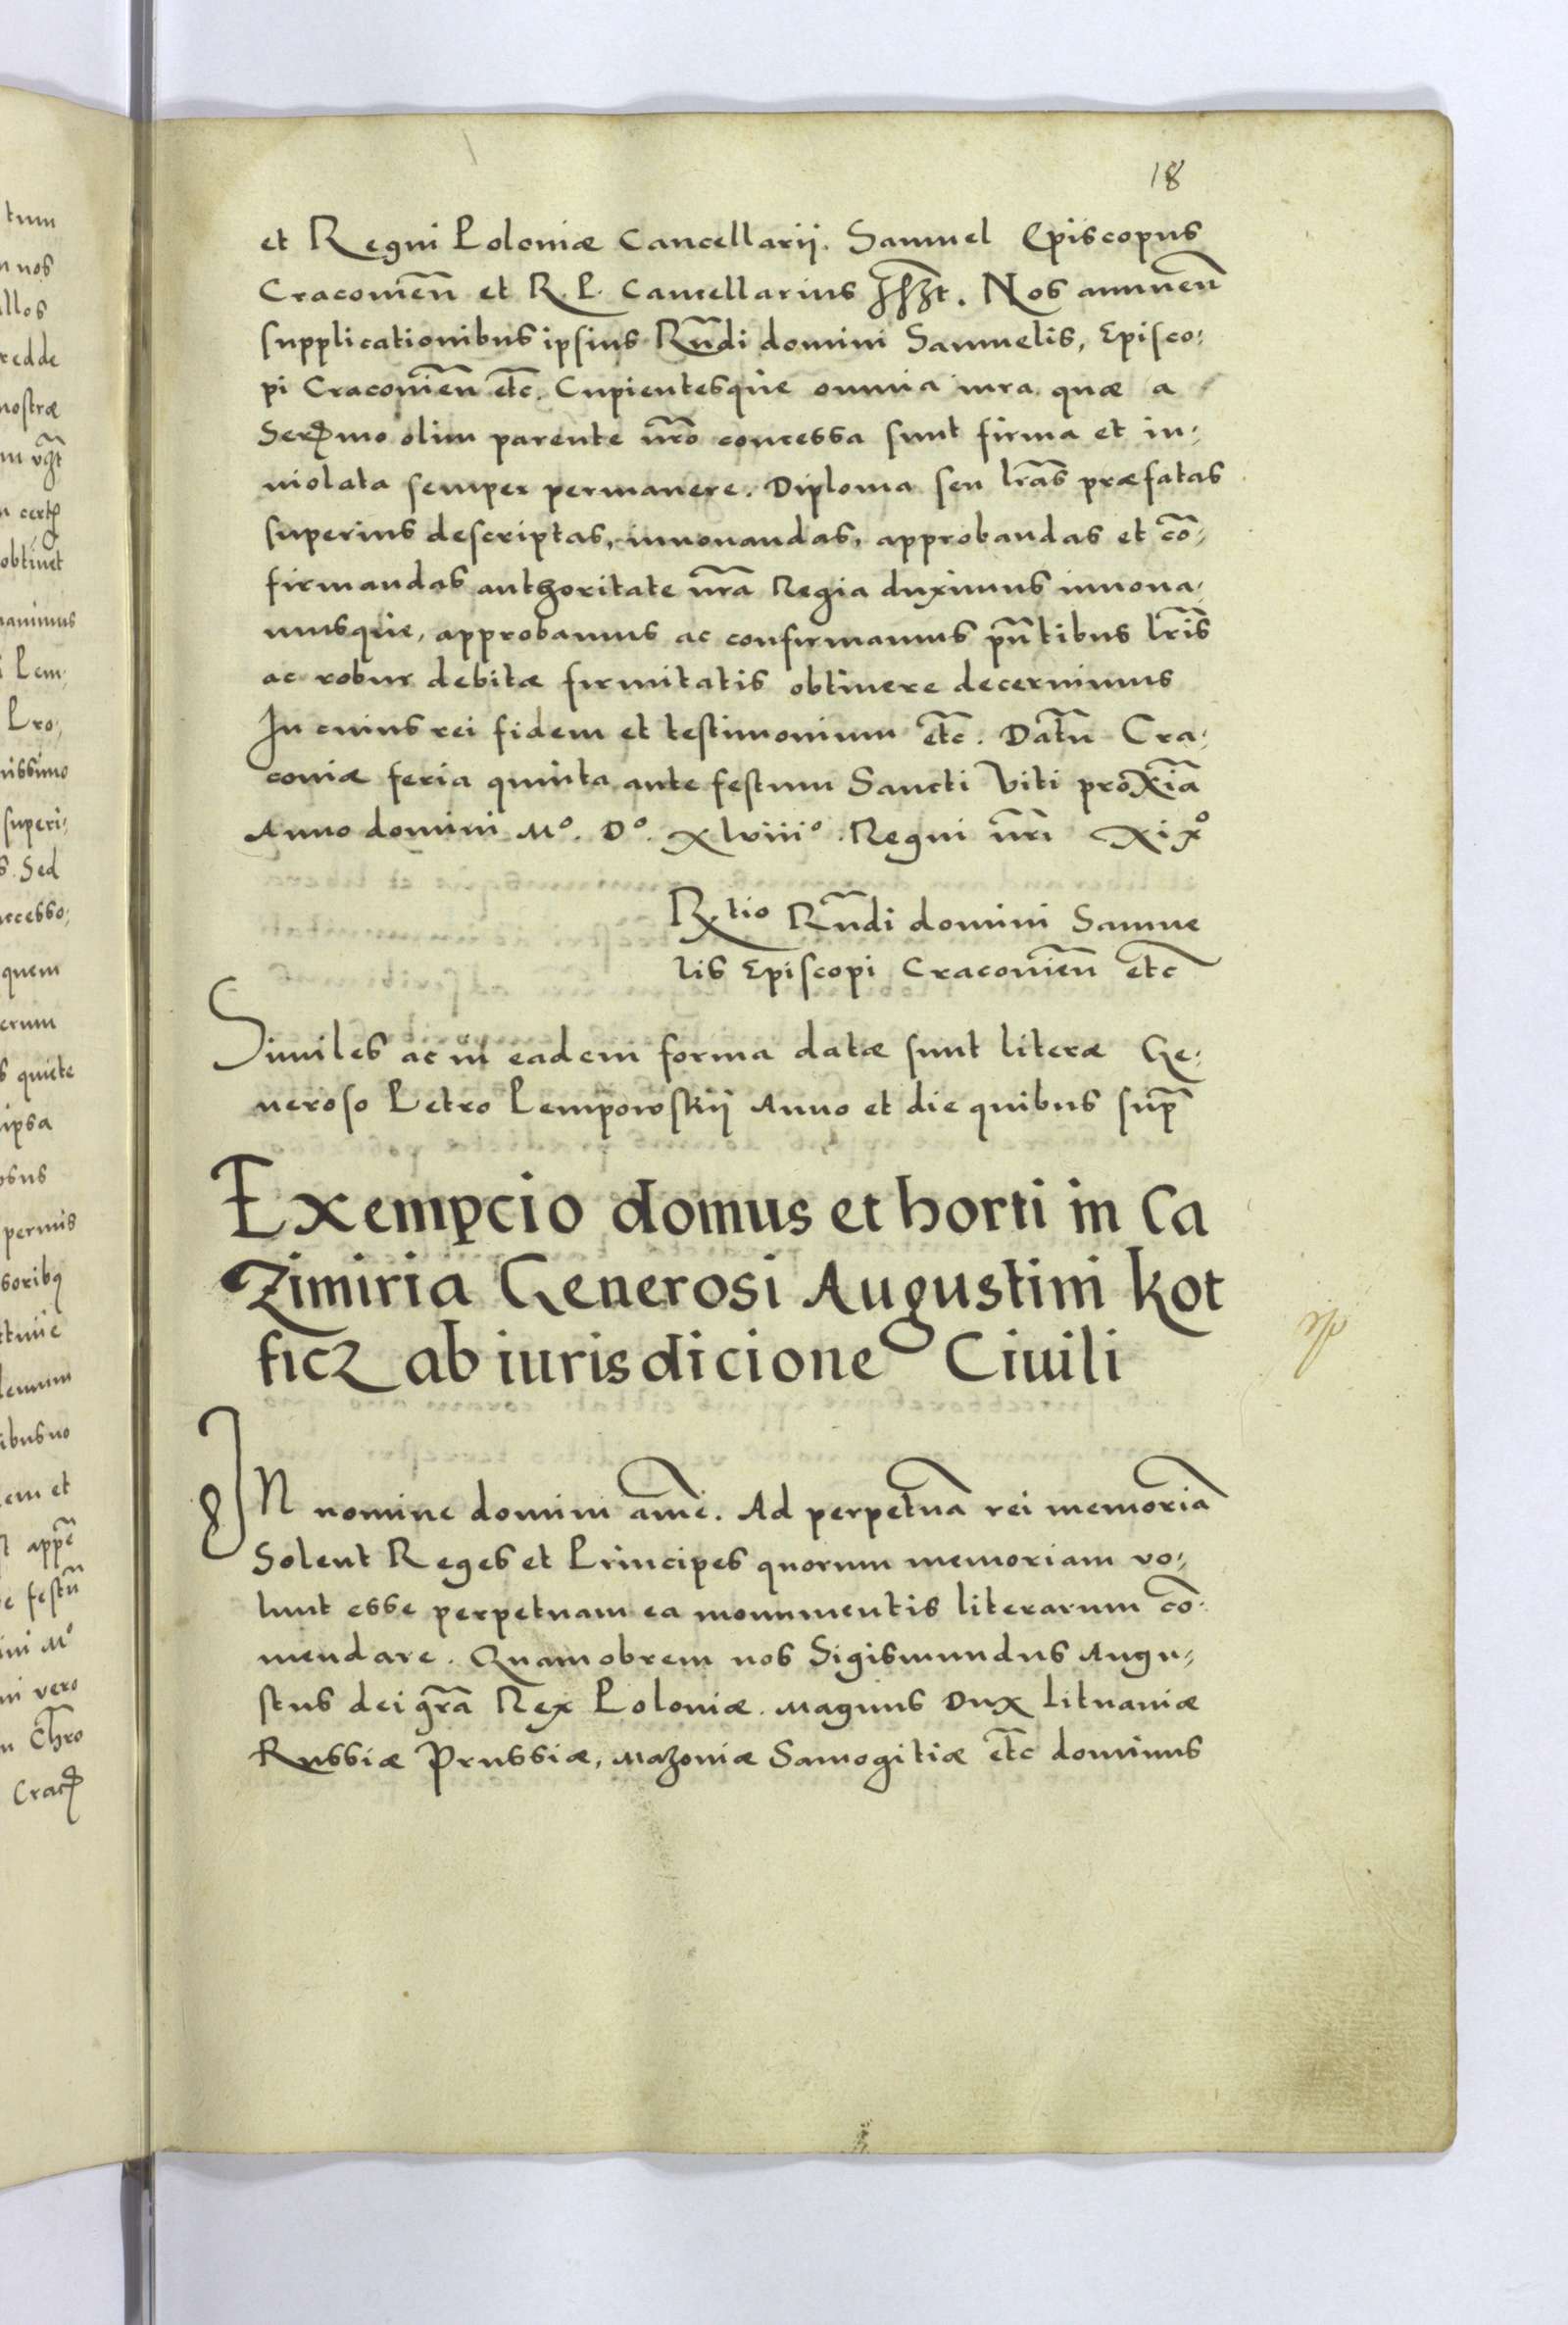 18
et Regni Poloniæ Cancellarij. Samuel Episcopus
Cracovien̄ et R. P. Cancellarius . Nos annuen̄
supplicationibus ipsius Rn̄di domini Samuelis, Episco-
pi Cracovien̄ etc̄. Cupientesque omnia iura quæ a
Ser̄mo olim parente nr̄o concessa sunt firma et in-
uiolata semper permanere. Diploma seu lr̄as præfatas
superius descriptas, innouandas, approbandas et cō-
firmandas authoritate nr̄a Regia duximus innoua-
musque, approbamus ac confirmamus pn̄tibus lr̄is
ac robur debitæ firmitatis obtinere decernimus
In cuius rei fidem et testimonium etc̄. Datū Cra-
coniæ feria quinta ante festum Sancti Viti proxīa
Anno domini Mº. Dº. xlviiiº. Regni nr̄i xixº
Rtio Rn̄di domini Samue
lis Episcopi Cracovien̄ etc̄
Similes ac in eadem forma datæ sunt literæ Ge-
neroso Petro Lempowskij Anno et die quibus sup̄
Exempcio domus et horti in Ca
zimiria Generosi Augustini kot
ficz ab iurisdicione Ciuili
IN nomine domini amē. Ad perpetuā rei memoriā
Solent Reges et Principes quorum memoriam vo-
lunt esse perpetuam ea monumentis literarum cō-
mendare. Quamobrem nos Sigismundus Augu-
stus dei gr̄a Rex Poloniæ. Magnus Dux Lituaniæ
Russiæ Prussiæ, Mazouiæ Samogitiæ etc̄ dominus
tum
nos
llos
redde
nostræ
obtinet
Lem-
Pro-
superi-
Sed
quem
erum
quiete
ipsa
em et
vero